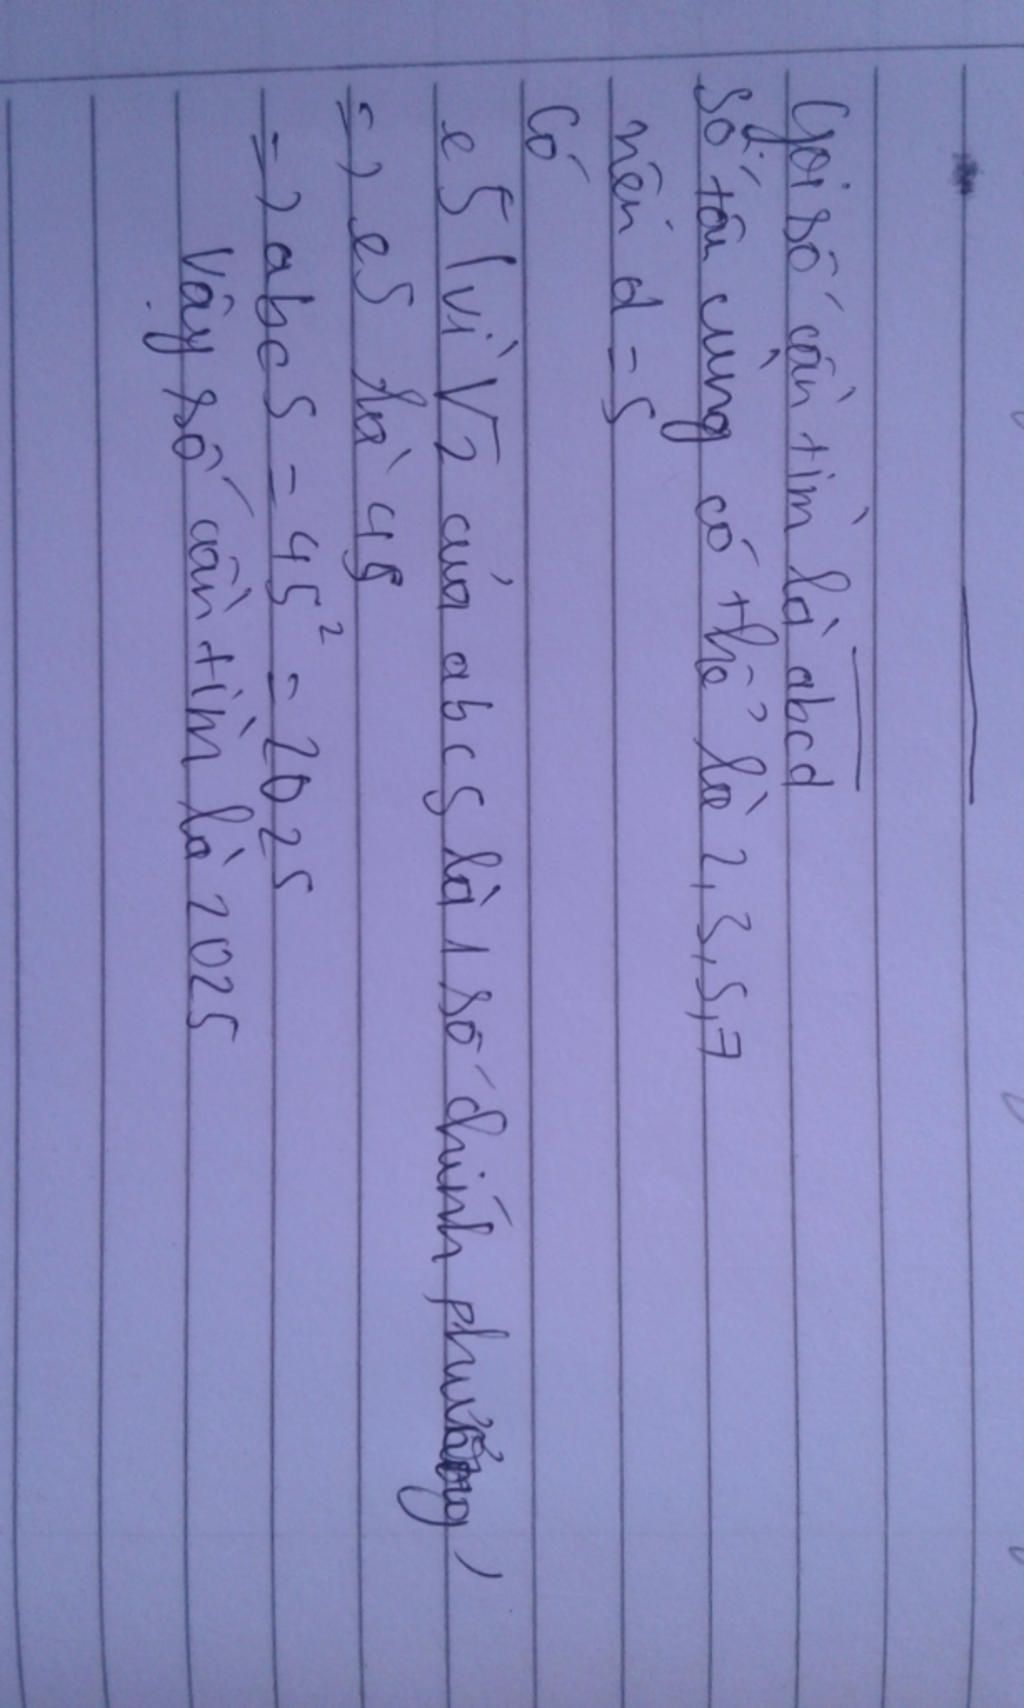 Gọi số cần tìm là abcd
Số tân cùng có thể là 2,3,5,7
nên d = 5
Có
e5 (vì √2 của abc5 là 1 số chính phương)
=) e5 là 45
=) abc5 = 45² = 2025
Vậy số cần tìm là 2025